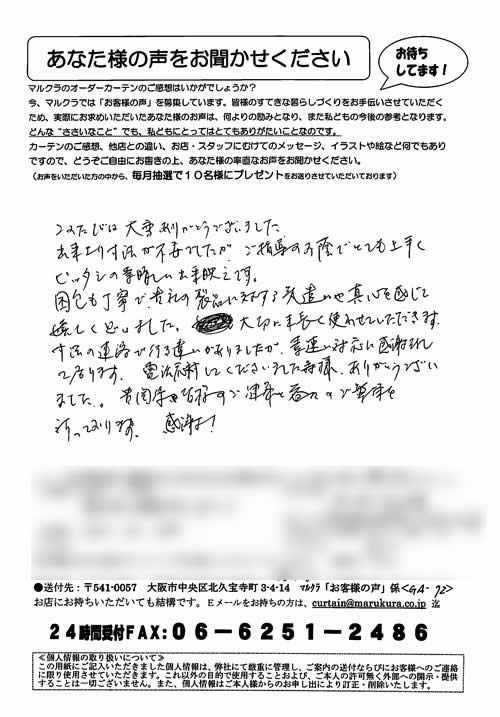 あなた様の声をお聞かせください
お待ち
してます！
マルクラのオーダーカーテンのご感想はいかがでしょうか？
今、マルクラでは「お客様の声」を募集しています。皆様のすてきな暮らしづくりをお手伝いさせていただく
ため、実際にお求めいただいたあなた様のお声は、何よりの励みとなり、また私どもの今後の参考となります。
どんな“ささいなこと”でも、私どもにとってはとてもありがたいことなのです。
カーテンのご感想、他店との違い、お店・スタッフにむけてのメッセージ、イラストや絵など何でもあり
ですので、どうぞご自由にお書きの上、あなた様の率直なお声をお聞かせください。
（お声をいただいた方の中から、毎月抽選で１０名様にプレゼントをお送りさせていただいております）
このたびは大変ありがとうございました。
出来上り寸法が不安でしたが、ご指導のお陰でとても上手く
ピッタシの素晴しい出来映えです。
梱包も丁寧で、貴社の製品に対する気遣いや真心を感じて
嬉しく思いました。大切に末長く使わせていただきます。
寸法の連絡で行き違いがありましたが、迅速な対応に感謝され
ております。電話応対してくださいました 様、ありがとうござい
ました。 皆様のご健康と 
祈っております。感謝！
●送付先：〒541-0057 大阪市中央区北久宝寺町3-4-14 マルクラ「お客様の声」係<GA-72>
お店にお持ちいただいても結構です。Eメールをお持ちの方は、curtain@marukura.co.jp 迄
２４時間受付FAX:０６－６２５１－２４８６
≪個人情報の取り扱いについて≫
この用紙にご記入いただきました個人情報は、弊社にて厳重に管理し、ご案内の送付ならびにお客様へのご連絡
に限り使用させていただきます。これ以外の目的で使用することおよび、ご本人の許可無く外部への開示・提供
することは一切ございません。また、個人情報はご本人様からのお申し出により訂正・削除いたします。